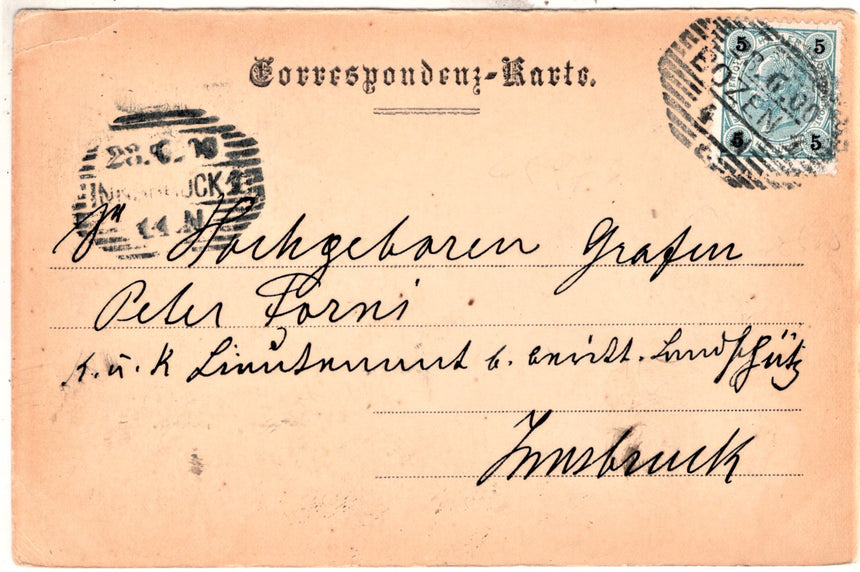 Correspondenz-Karte.
5 5
BOZEN
5 5
28.6.00
INNSBRUCK
11 N
Sr Hochgeboren Grafen
Peter Forni
k. u. K Lieutenant b. beritt. Landschütz
Innsbruck